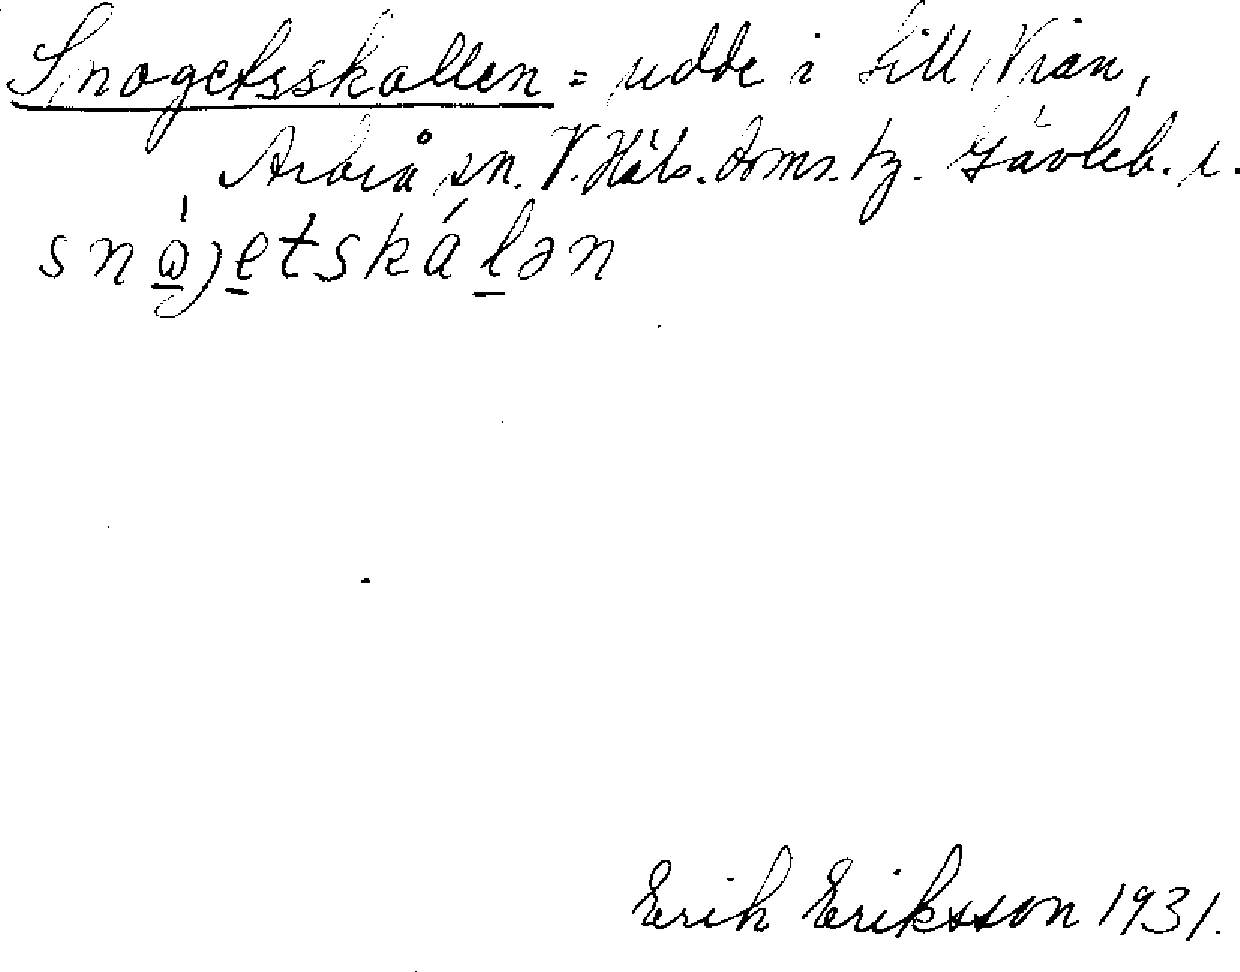 Snogetsskallen = udde i Lill Vian,
Arbrå sn. V. Häls. doms. tg. Gävleb. l.
snǻjetskálən
Erik Eriksson 1931.